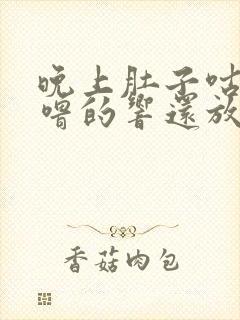 晚上肚子咕
嚕的響還放
香菇肉包